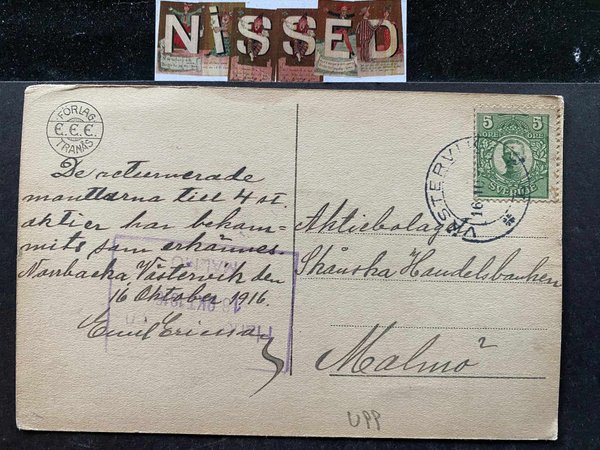 NISSED
FÖRLAG
E.E.E.
TRANÅS
De returnerade
manttlarna till 4 st.
aktier har bekom-
mits som erkännes
Norrbacka Västervik den
16 Oktober 1916.
Emil Ericsson
5 5
ÖRE ÖRE
SVERIGE
VÄSTERVIK
16
Aktiebolaget
Skånska Handelsbanken
Malmö
UPP